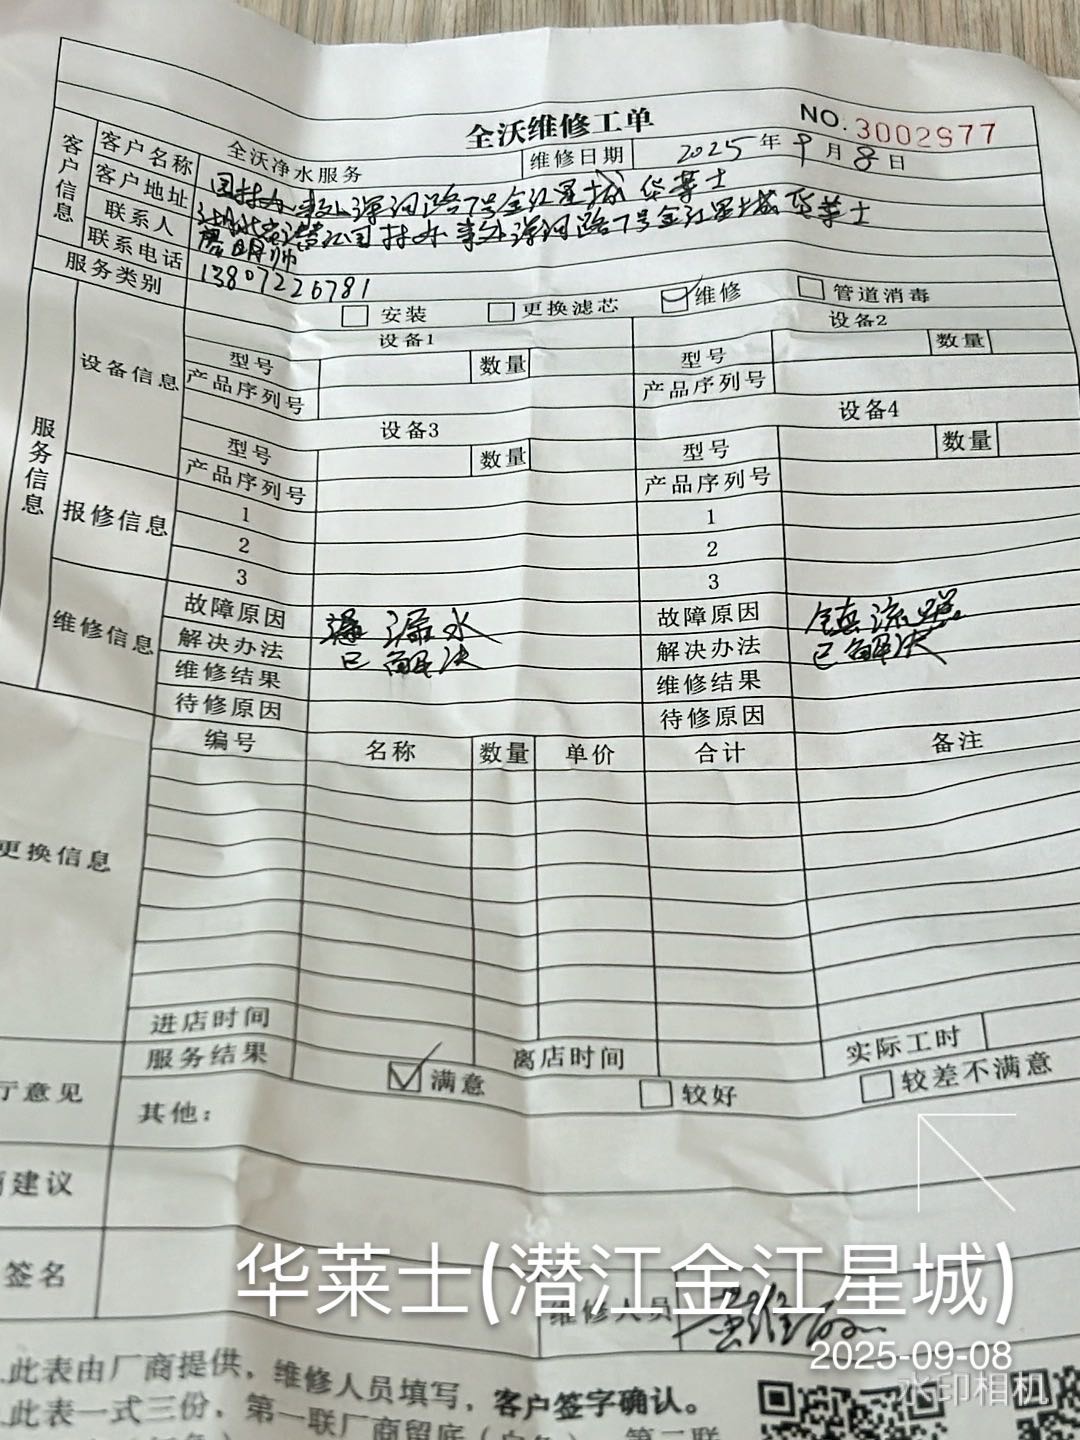 全沃维修工单
NO. 3002977
全沃净水服务
维修日期 2025 年 9 月 8 日
客户信息
客户名称 园林办事处潭河路7号金江星城 华莱士
客户地址 湖北省潜江园林办事处潭河路7号金江星城 华莱士
联系人
联系电话 13807226781
服务类别 安装 更换滤芯 维修 管道消毒
服务信息
设备信息
设备1 设备2
型号 数量 型号 数量
产品序列号 产品序列号
设备3 设备4
型号 数量 型号 数量
产品序列号 产品序列号
报修信息
1 1
2 2
3 3
维修信息
故障原因 漏水 故障原因
解决办法 已解决 解决办法 已解决
维修结果 维修结果
待修原因 待修原因
编号 名称 数量 单价 合计 备注
更换信息
进店时间 离店时间 实际工时
服务结果 满意 较好 较差不满意
厅意见
其他:
建议
签名
维修人员
华莱士(潜江金江星城)
2025-09-08
水印相机
.此表由厂商提供，维修人员填写，客户签字确认。
.此表一式三份，第一联厂商留底（白色），第二联